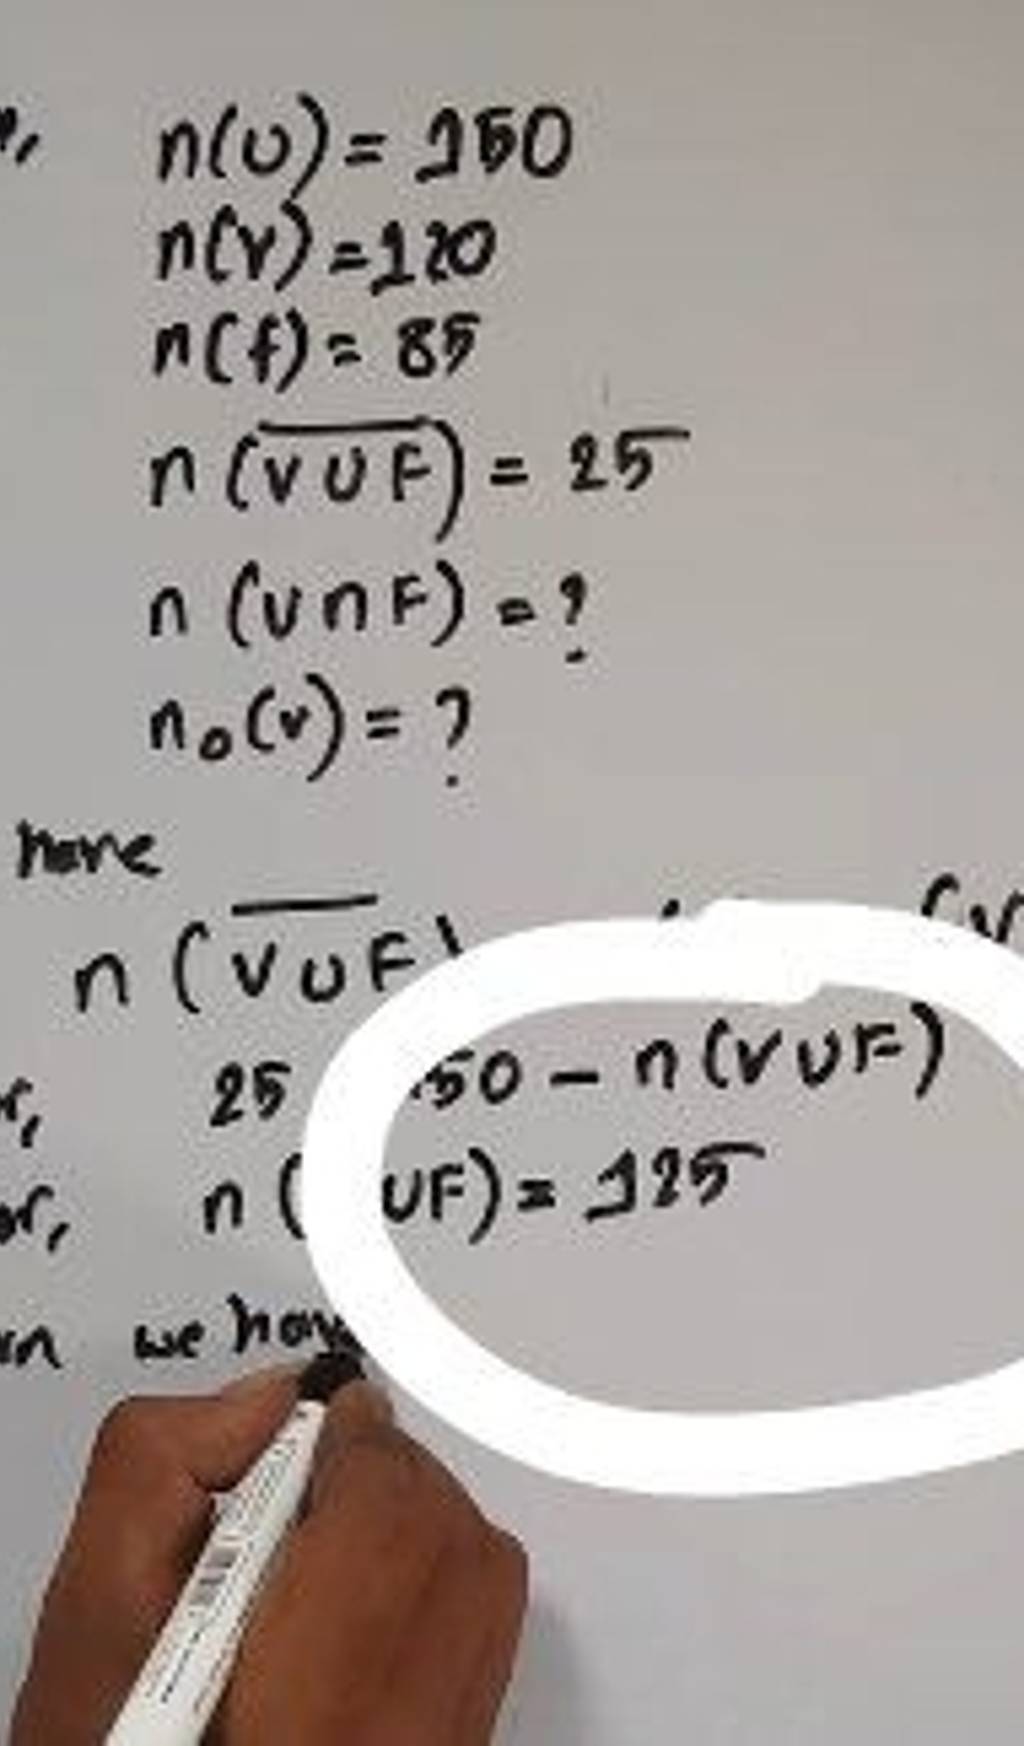 n(U) = 150
n(V) = 120
n(f) = 85
n(V̅ ̅U̅ ̅F̅) = 25
n (V n F) = ?
n₀(v) = ?
have
n (V̅ ̅U̅ ̅F̅)
25 50 - n(VUF)
or, n ( UF) = 125
we have